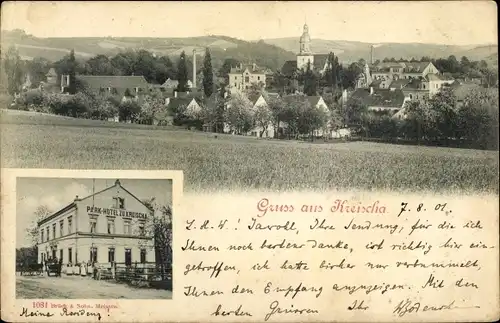 Gruss aus Kreischa.
7. 8. 01.
I. H. W! Jawohl, Ihre Sendung, für die ich
Ihnen noch bestens danke, ist richtig hier ein-
getroffen, ich hatte bisher nur verbummelt,
Ihnen den Empfang anzuzeigen. Mit den
besten Grüssen Ihr
PARK-HOTEL ZU KREISCHA.
1031 Brück & Sohn, Meissen.
Meine Residenz!